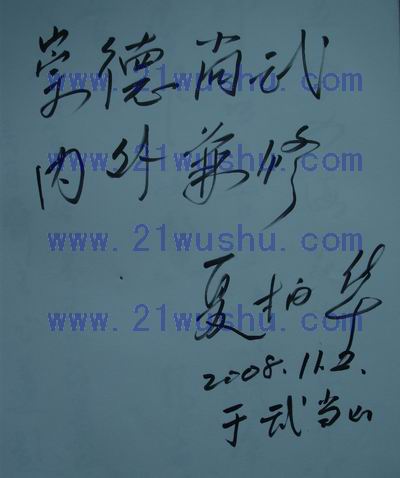 崇德尚武
www.21wushu.com
内外兼修
www.21wushu.com
www.21wushu.com
夏柏华
www.21wushu.com
2008.11.2.
于武当山